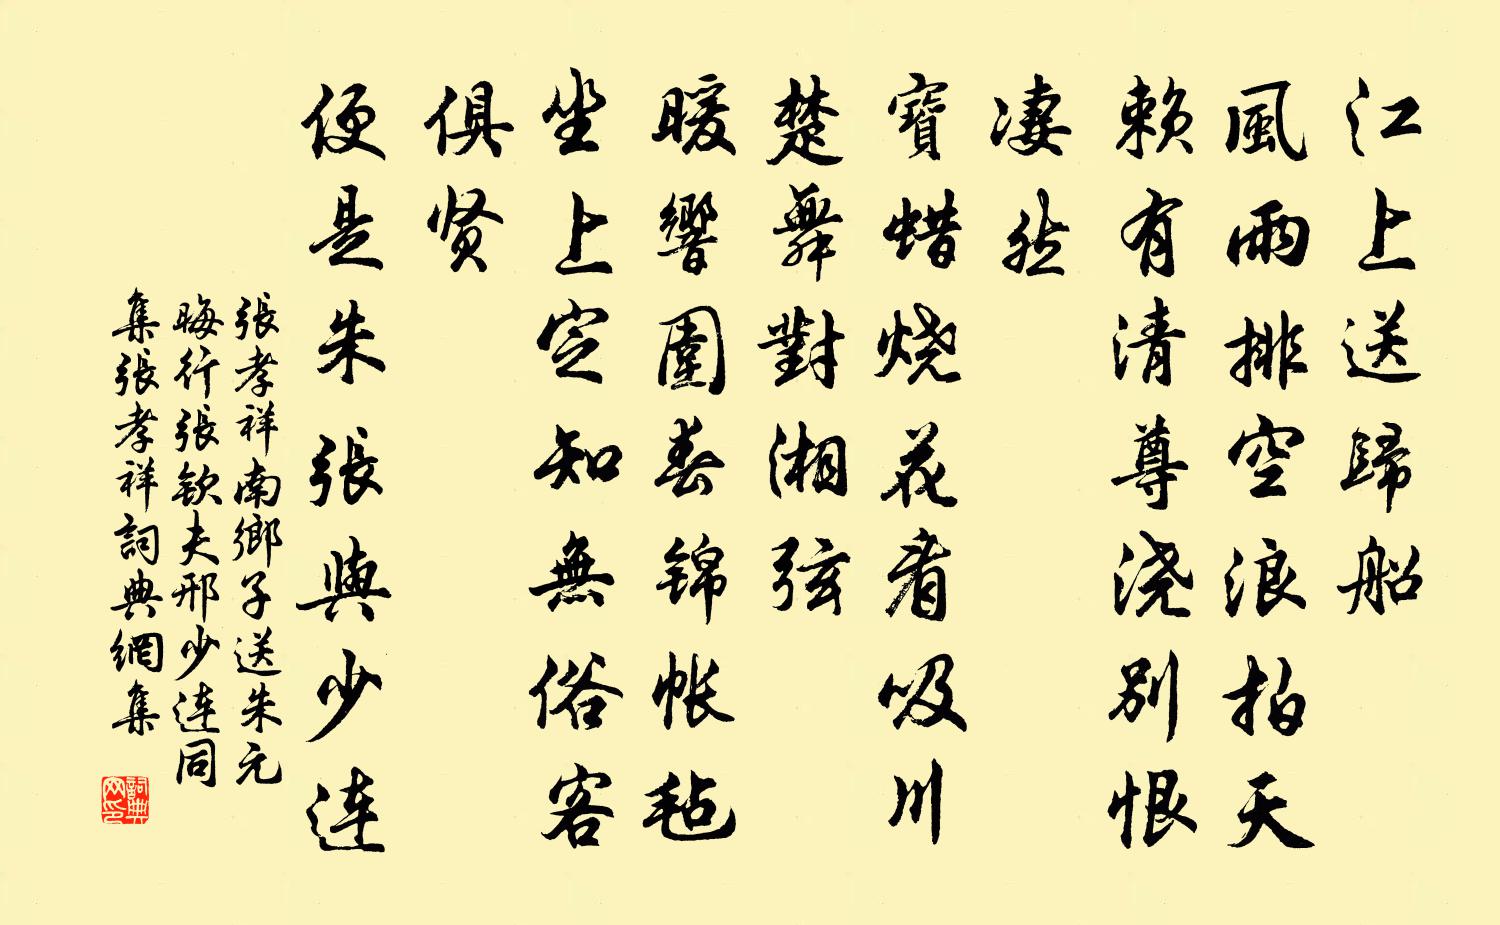 江上送歸船
風雨排空浪拍天
賴有清尊浇別恨
凄然
寶蜡烧花看吸川
楚舞對湘弦
暖響圍春锦帐毡
坐上定知無俗客
俱贤
便是朱張與少连
張孝祥南鄉子送朱元
晦行張欽夫邢少连同
集張孝祥詞典網集
詞典
网印